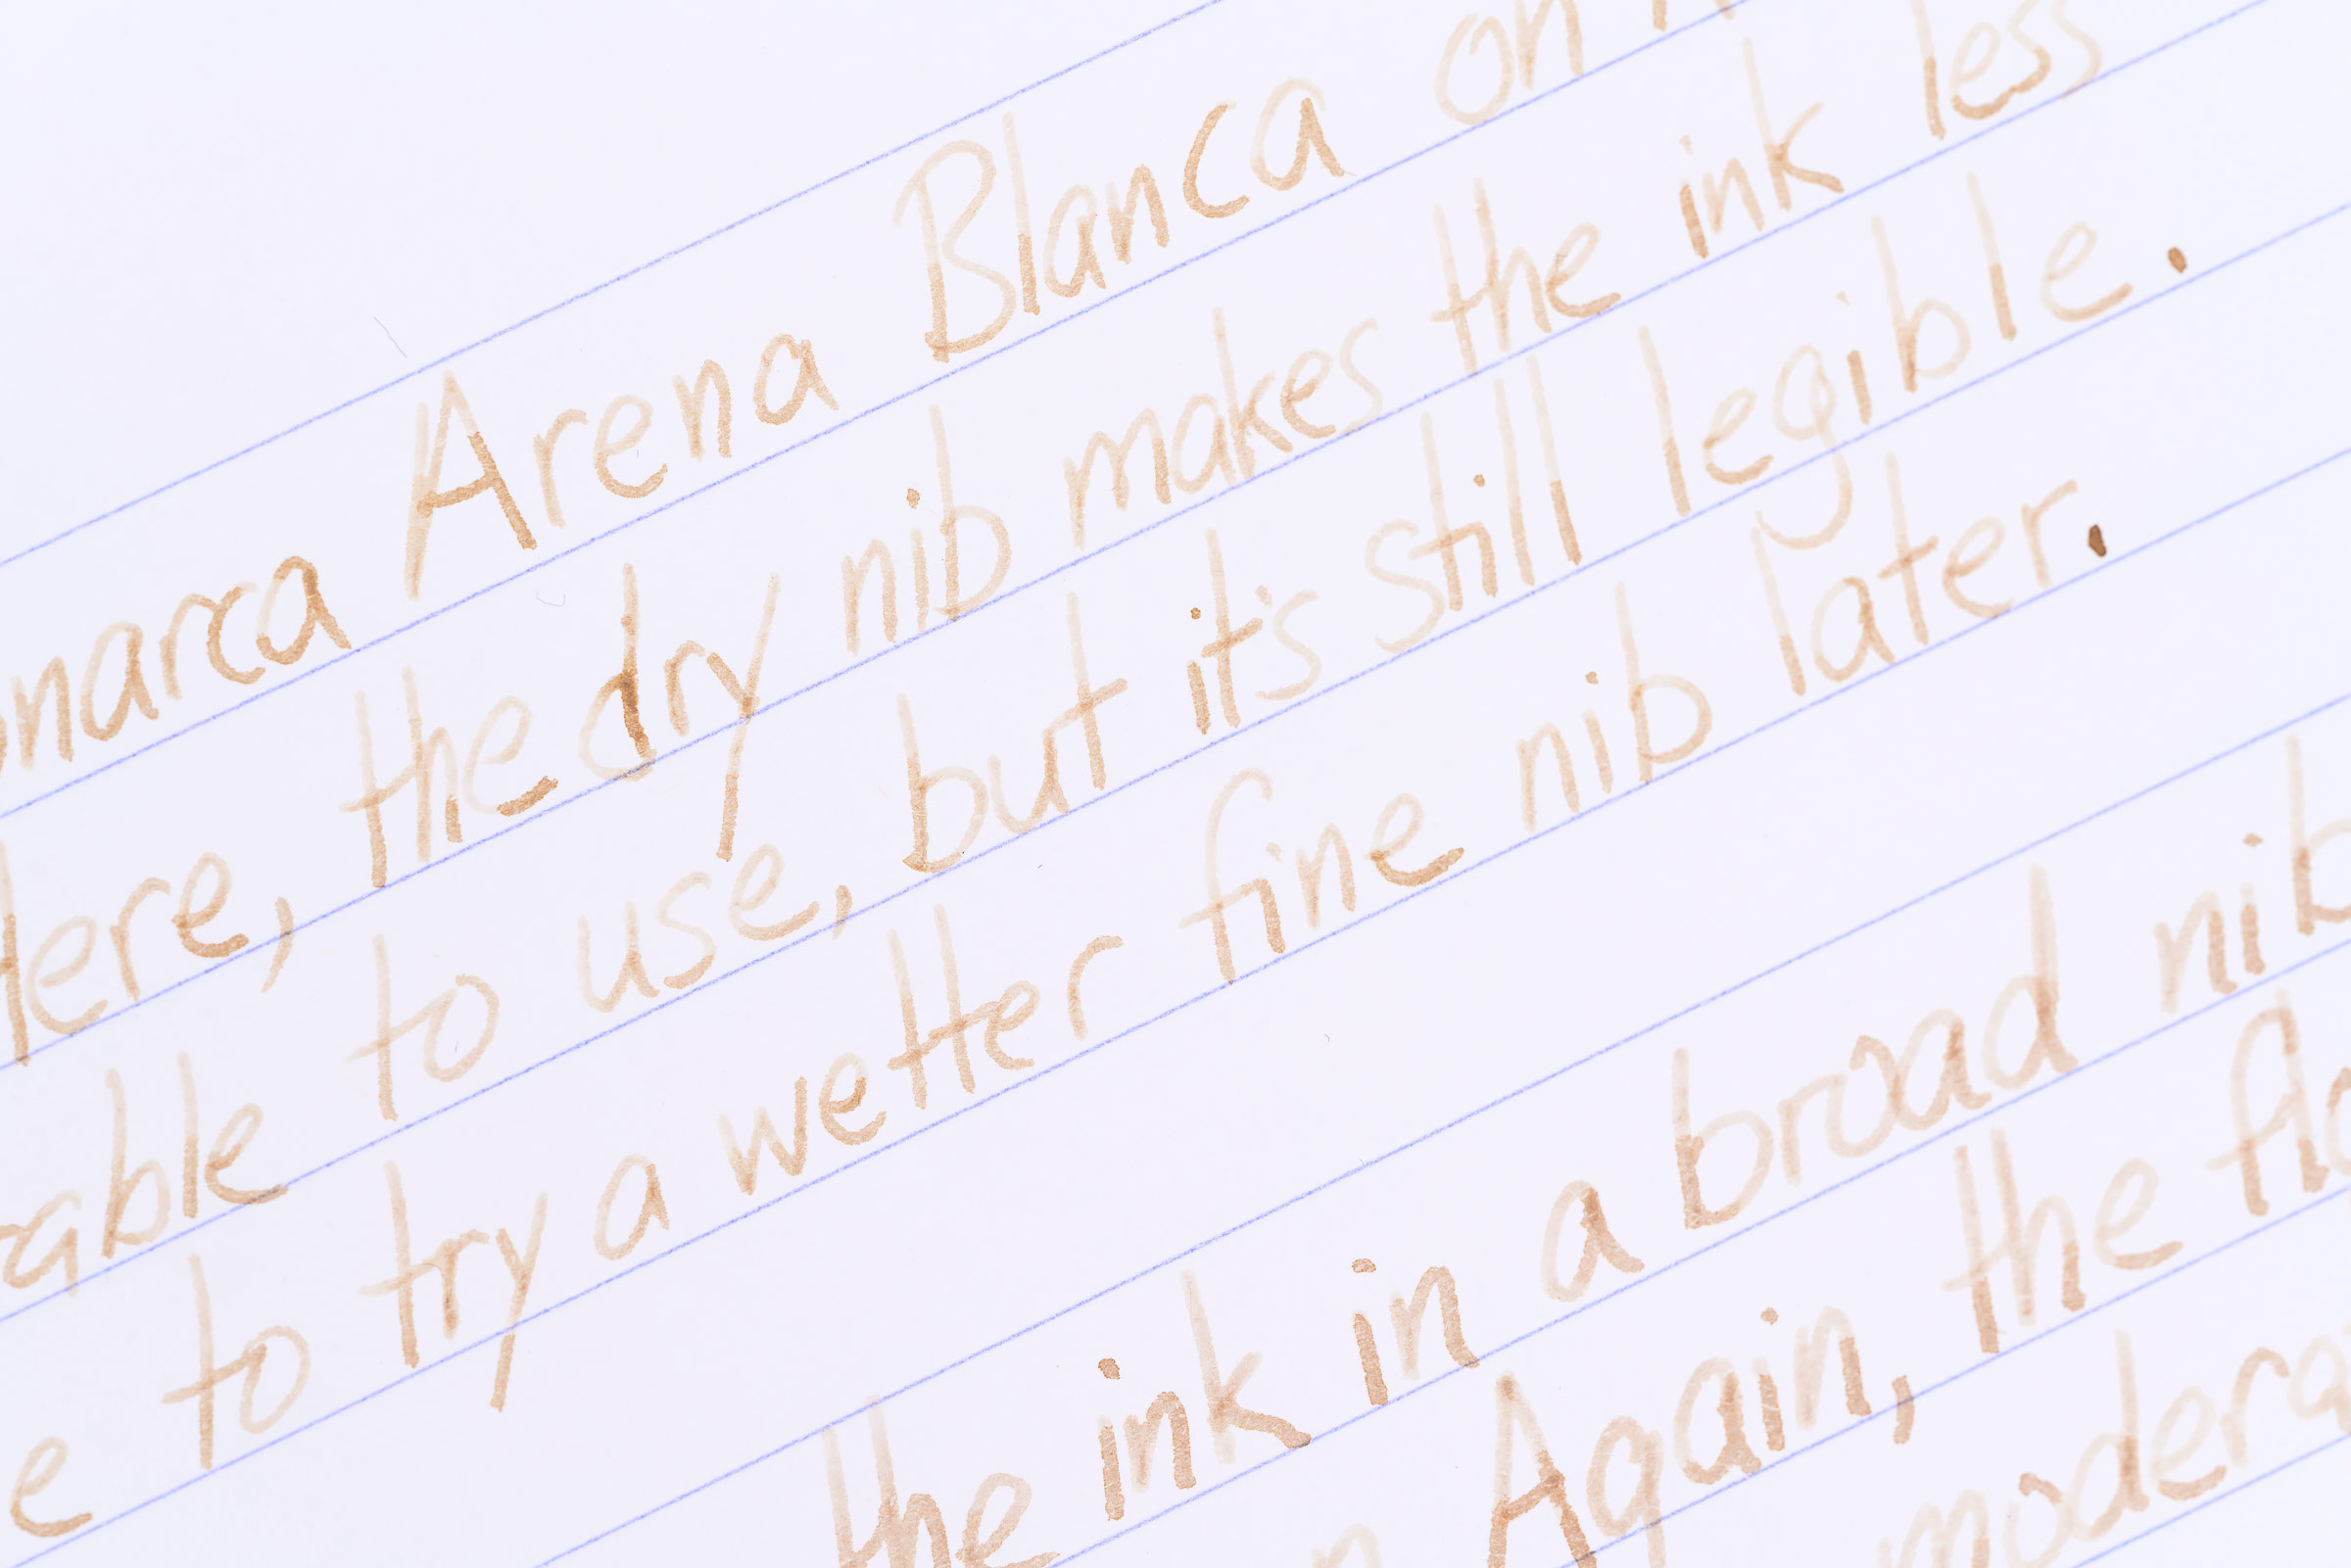 narca Arena Blanca on
Here, the dry nib makes the ink less
able to use, but it's still legible.
e to try a wetter fine nib later.
the ink in a broad nib
Again, the flo
modera